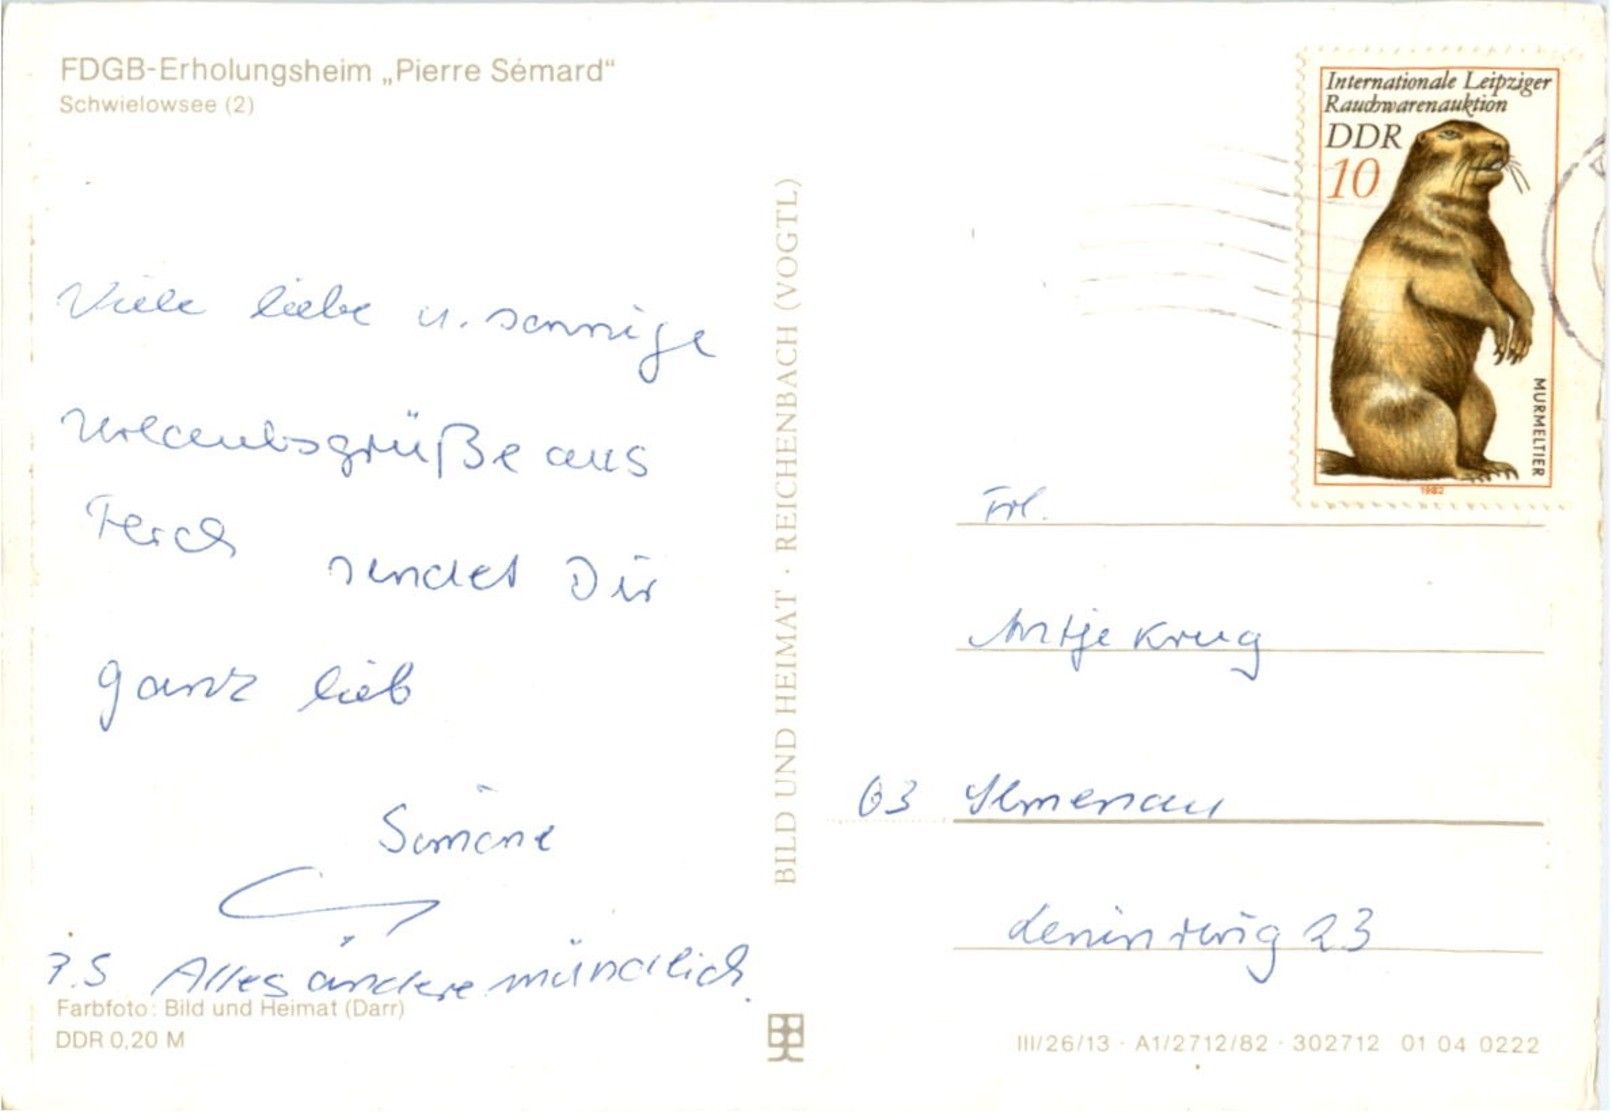 FDGB-Erholungsheim „Pierre Sémard“
Schwielowsee (2)
Viele liebe u. sonnige
Urlaubsgrüße aus
Ferch sendet Dir
ganz lieb
Simone
P.S Alles andere mündlich.
Farbfoto: Bild und Heimat (Darr)
DDR 0,20 M
BILD UND HEIMAT · REICHENBACH (VOGTL)
Internationale Leipziger
Rauchwarenauktion
DDR
10
MURMELTIER
1982
Frl.
Antje Krug
63 Ilmenau
Leninring 23
III/26/13 · A1/2712/82 · 302712 01 04 0222